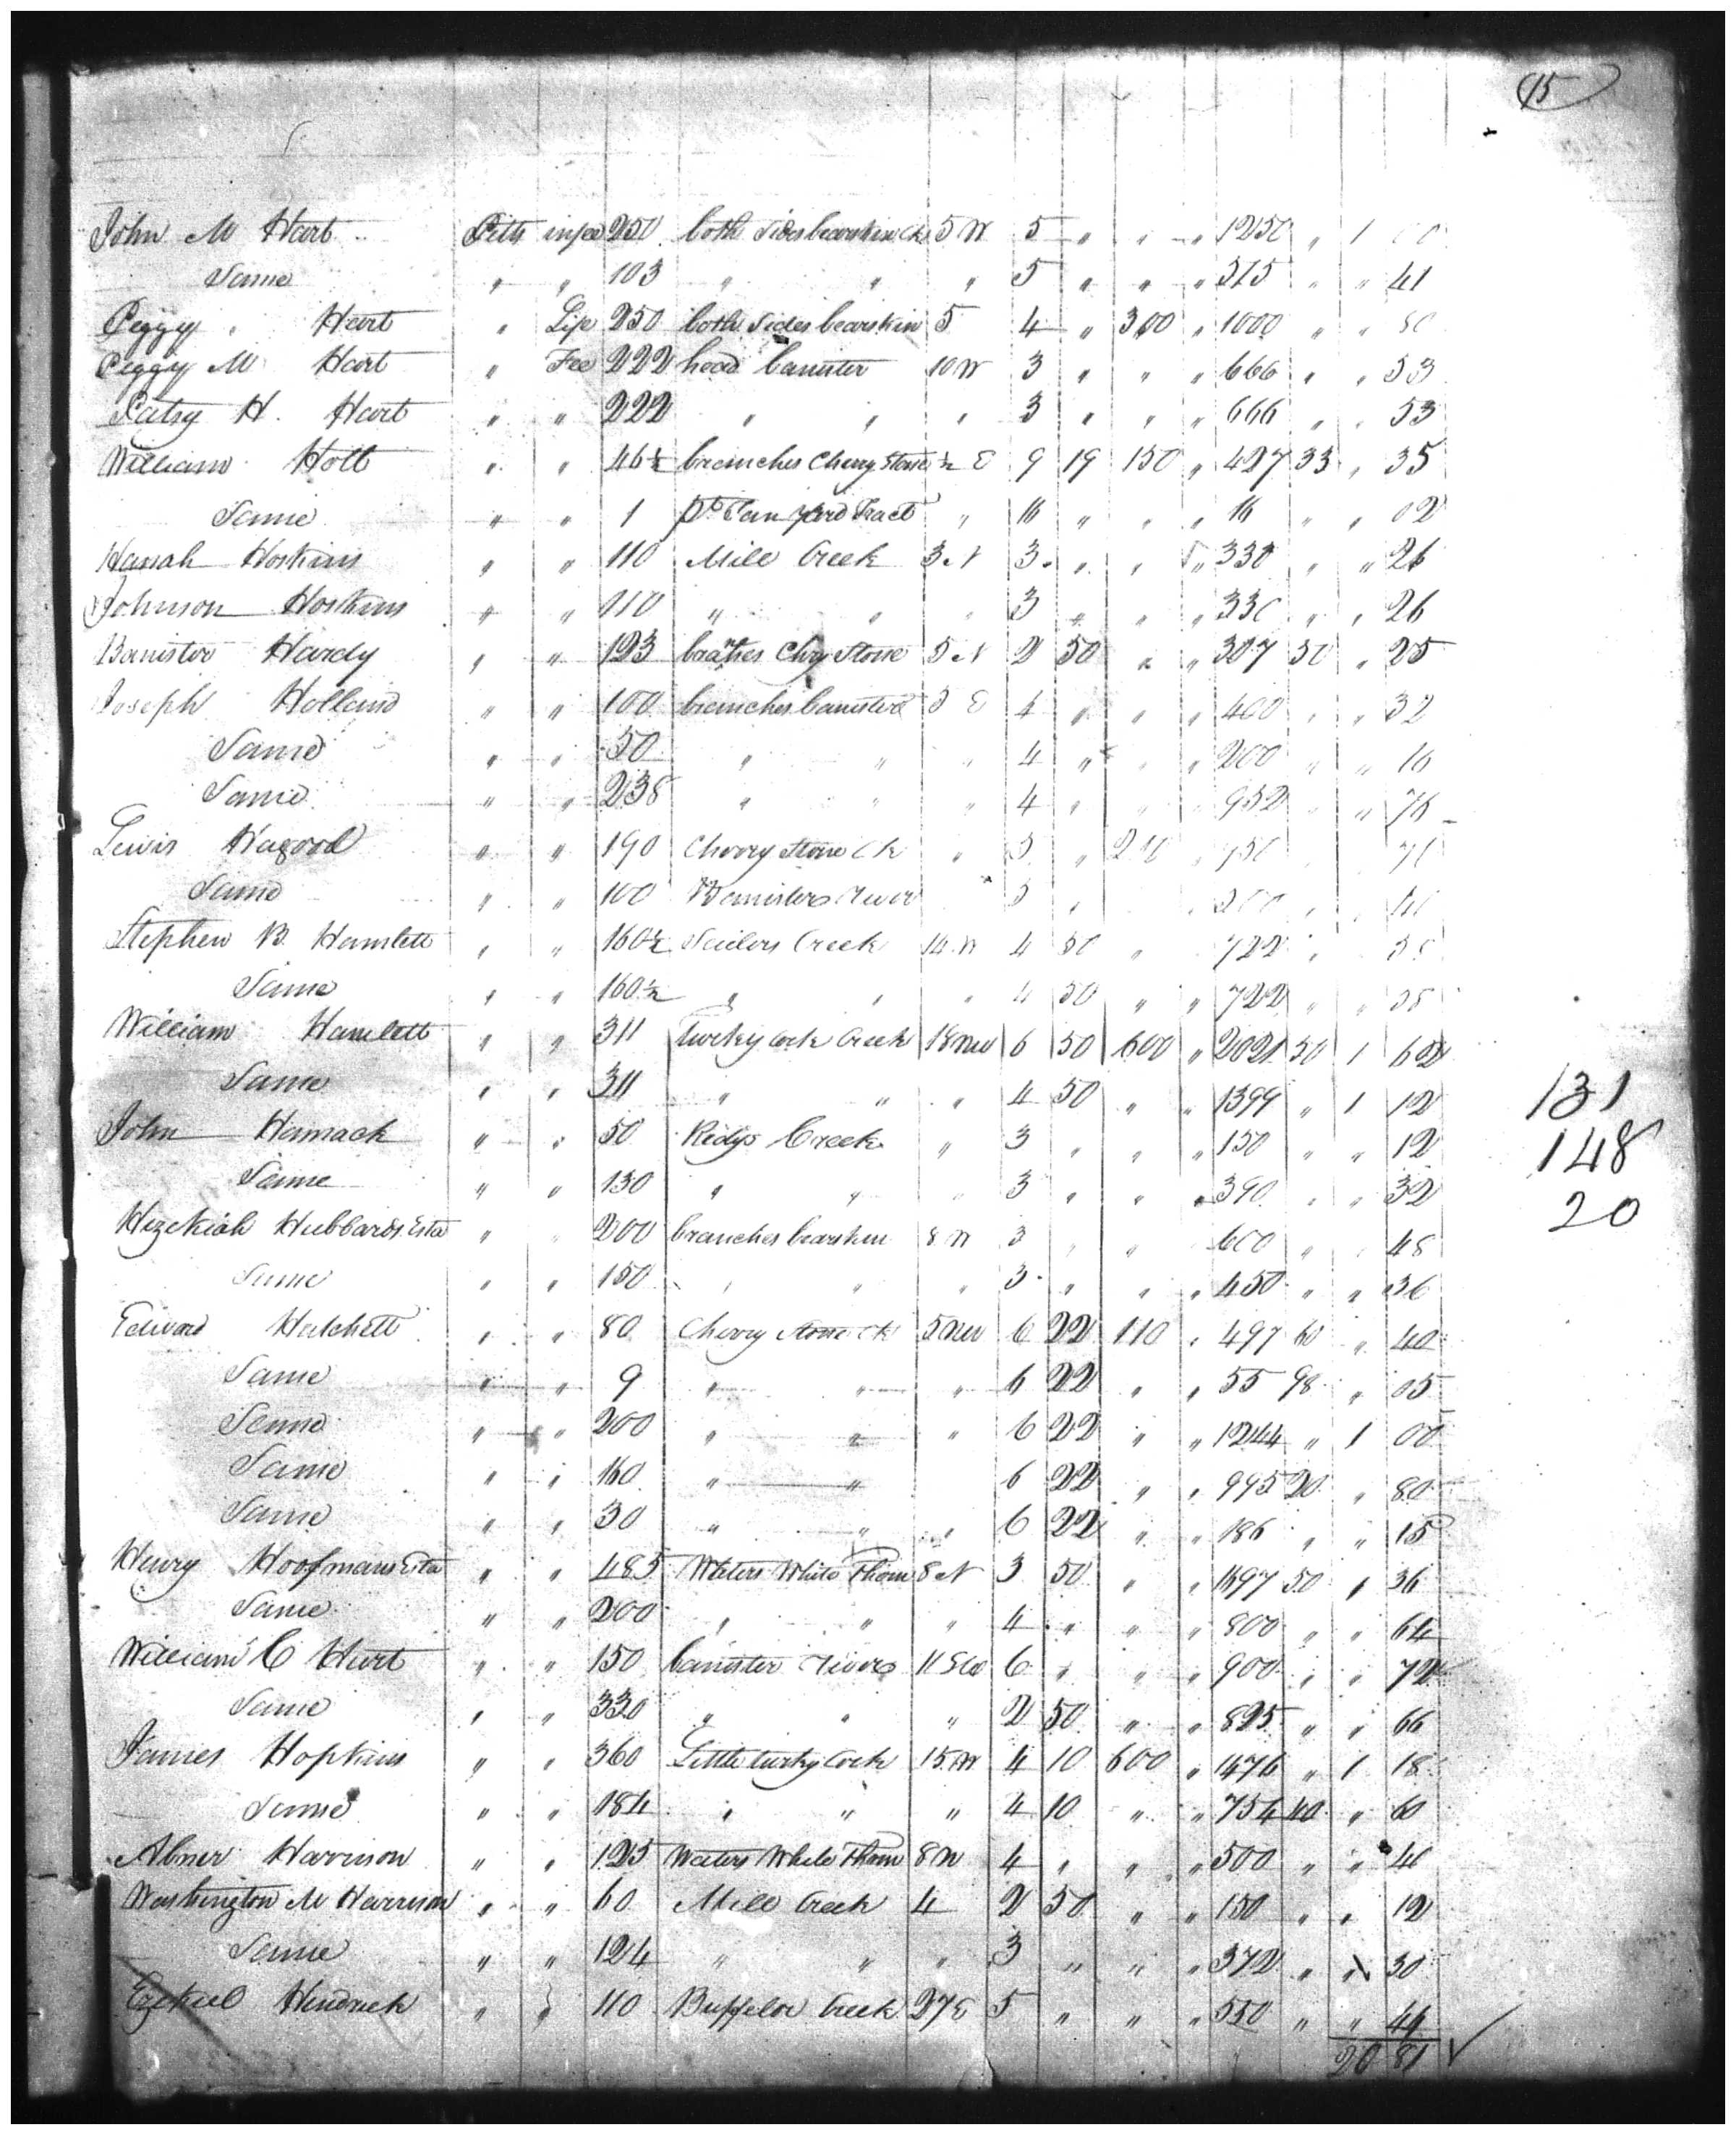 15
John M Hart Pitts in fee 250 both sides bearskin Ck 5 W 5 " " " 1250 " 1 00
Same " " 103 " " " 5 " " " 515 " " 41
Peggy Hart " Life 250 both sides bearskin 5 4 " 300 " 1000 " " 80
Peggy M Hart " Fee 222 head banister 10 W 3 " " " 666 " " 53
Patsy H. Hart " " 222 " " " 3 " " " 666 " " 53
William Holt " " 46½ branches Cherry Stone ½ E 9 19 150 " 427 33 " 35
Same " " 1 pt Tan Yard Tract " 16 " " " 16 " " 02
Hanah Hoskins " " 110 Mill Creek 3 N 3 " " " 330 " " 26
Johnson Hoskins " " 110 " " " 3 " " " 330 " " 26
Banister Hardy " " 123 braches Chy Stone 5 N 2 50 " " 307 50 " 25
Joseph Holland " " 100 branches banister 3 E 4 " " " 400 " " 32
Same " " 50 " " " 4 " " " 200 " " 16
Same " " 238 " " " 4 " " " 952 " " 76
Lewis Hagood " " 190 Cherry Stone Ck " 5 "
Same " " 100 Banister River
Stephen B. Hamlett " " 160½ Sailors Creek 14 W 4 50 " 722 " 58
Same " " 160½ " " " 4 50 " " 722 " " 58
William Hamlett " " 311 turkey cock Creek 18 NW 6 50 600 " 2021 50 1 62
Same " " 311 " " " 4 50 " " 1399 " 1 12
131
John Hamack " " 50 Reedys Creek " 3 " " " 150 " " 12
148
Same " " 130 " " " 3 " " " 390 " " 32
20
Hezekiah Hubbards Esta " " 200 branches bearskin 8 W 3 " " 600 " " 48
Same " " 150 " " " 3 " " " 450 " " 36
Edward Hatchett " " 80 Cherry Stone Ck 5 NW 6 22 110 " 497 60 " 40
Same " " 9 " " " 6 22 " " 55 98 " 05
Same " " 200 " " " 6 22 " " 1244 " 1 00
Same " " 160 " " 6 22 " " 995 20 " 80
Same " " 30 " " " 6 22 " " 186 " " 15
Henry Hoofmans Esta " " 485 Waters White Thorn 8 N 3 50 " " 1697 50 1 36
Same " " 200 " " " 4 " " " 800 " " 64
William C Hurt " " 150 banister River 11 SW 6 " " " 900 " " 72
Same " " 330 " " " 2 50 " " 825 " " 66
James Hopkins " " 360 Little turkey Cock 15 W 4 10 600 " 1476 " 1 18
Same " " 184 " " " 4 10 " " 754 40 " 60
Abner Harrison " " 125 Waters White Thorn 8 N 4 " " " 500 " " 40
Washington M Harrison " " 60 Mill Creek 4 2 50 " " 150 " " 12
Same " " 124 " " " 3 " " " 372 " " 30
Ezekiel Hendrick " " 110 Buffeloe Creek 27 E 5 " " " 550 " " 44
20 81